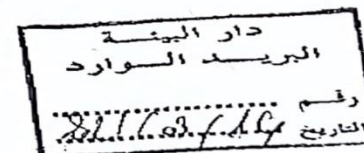 دار البيئــة
البريــد الــوارد
رقــم ........................
التاريخ